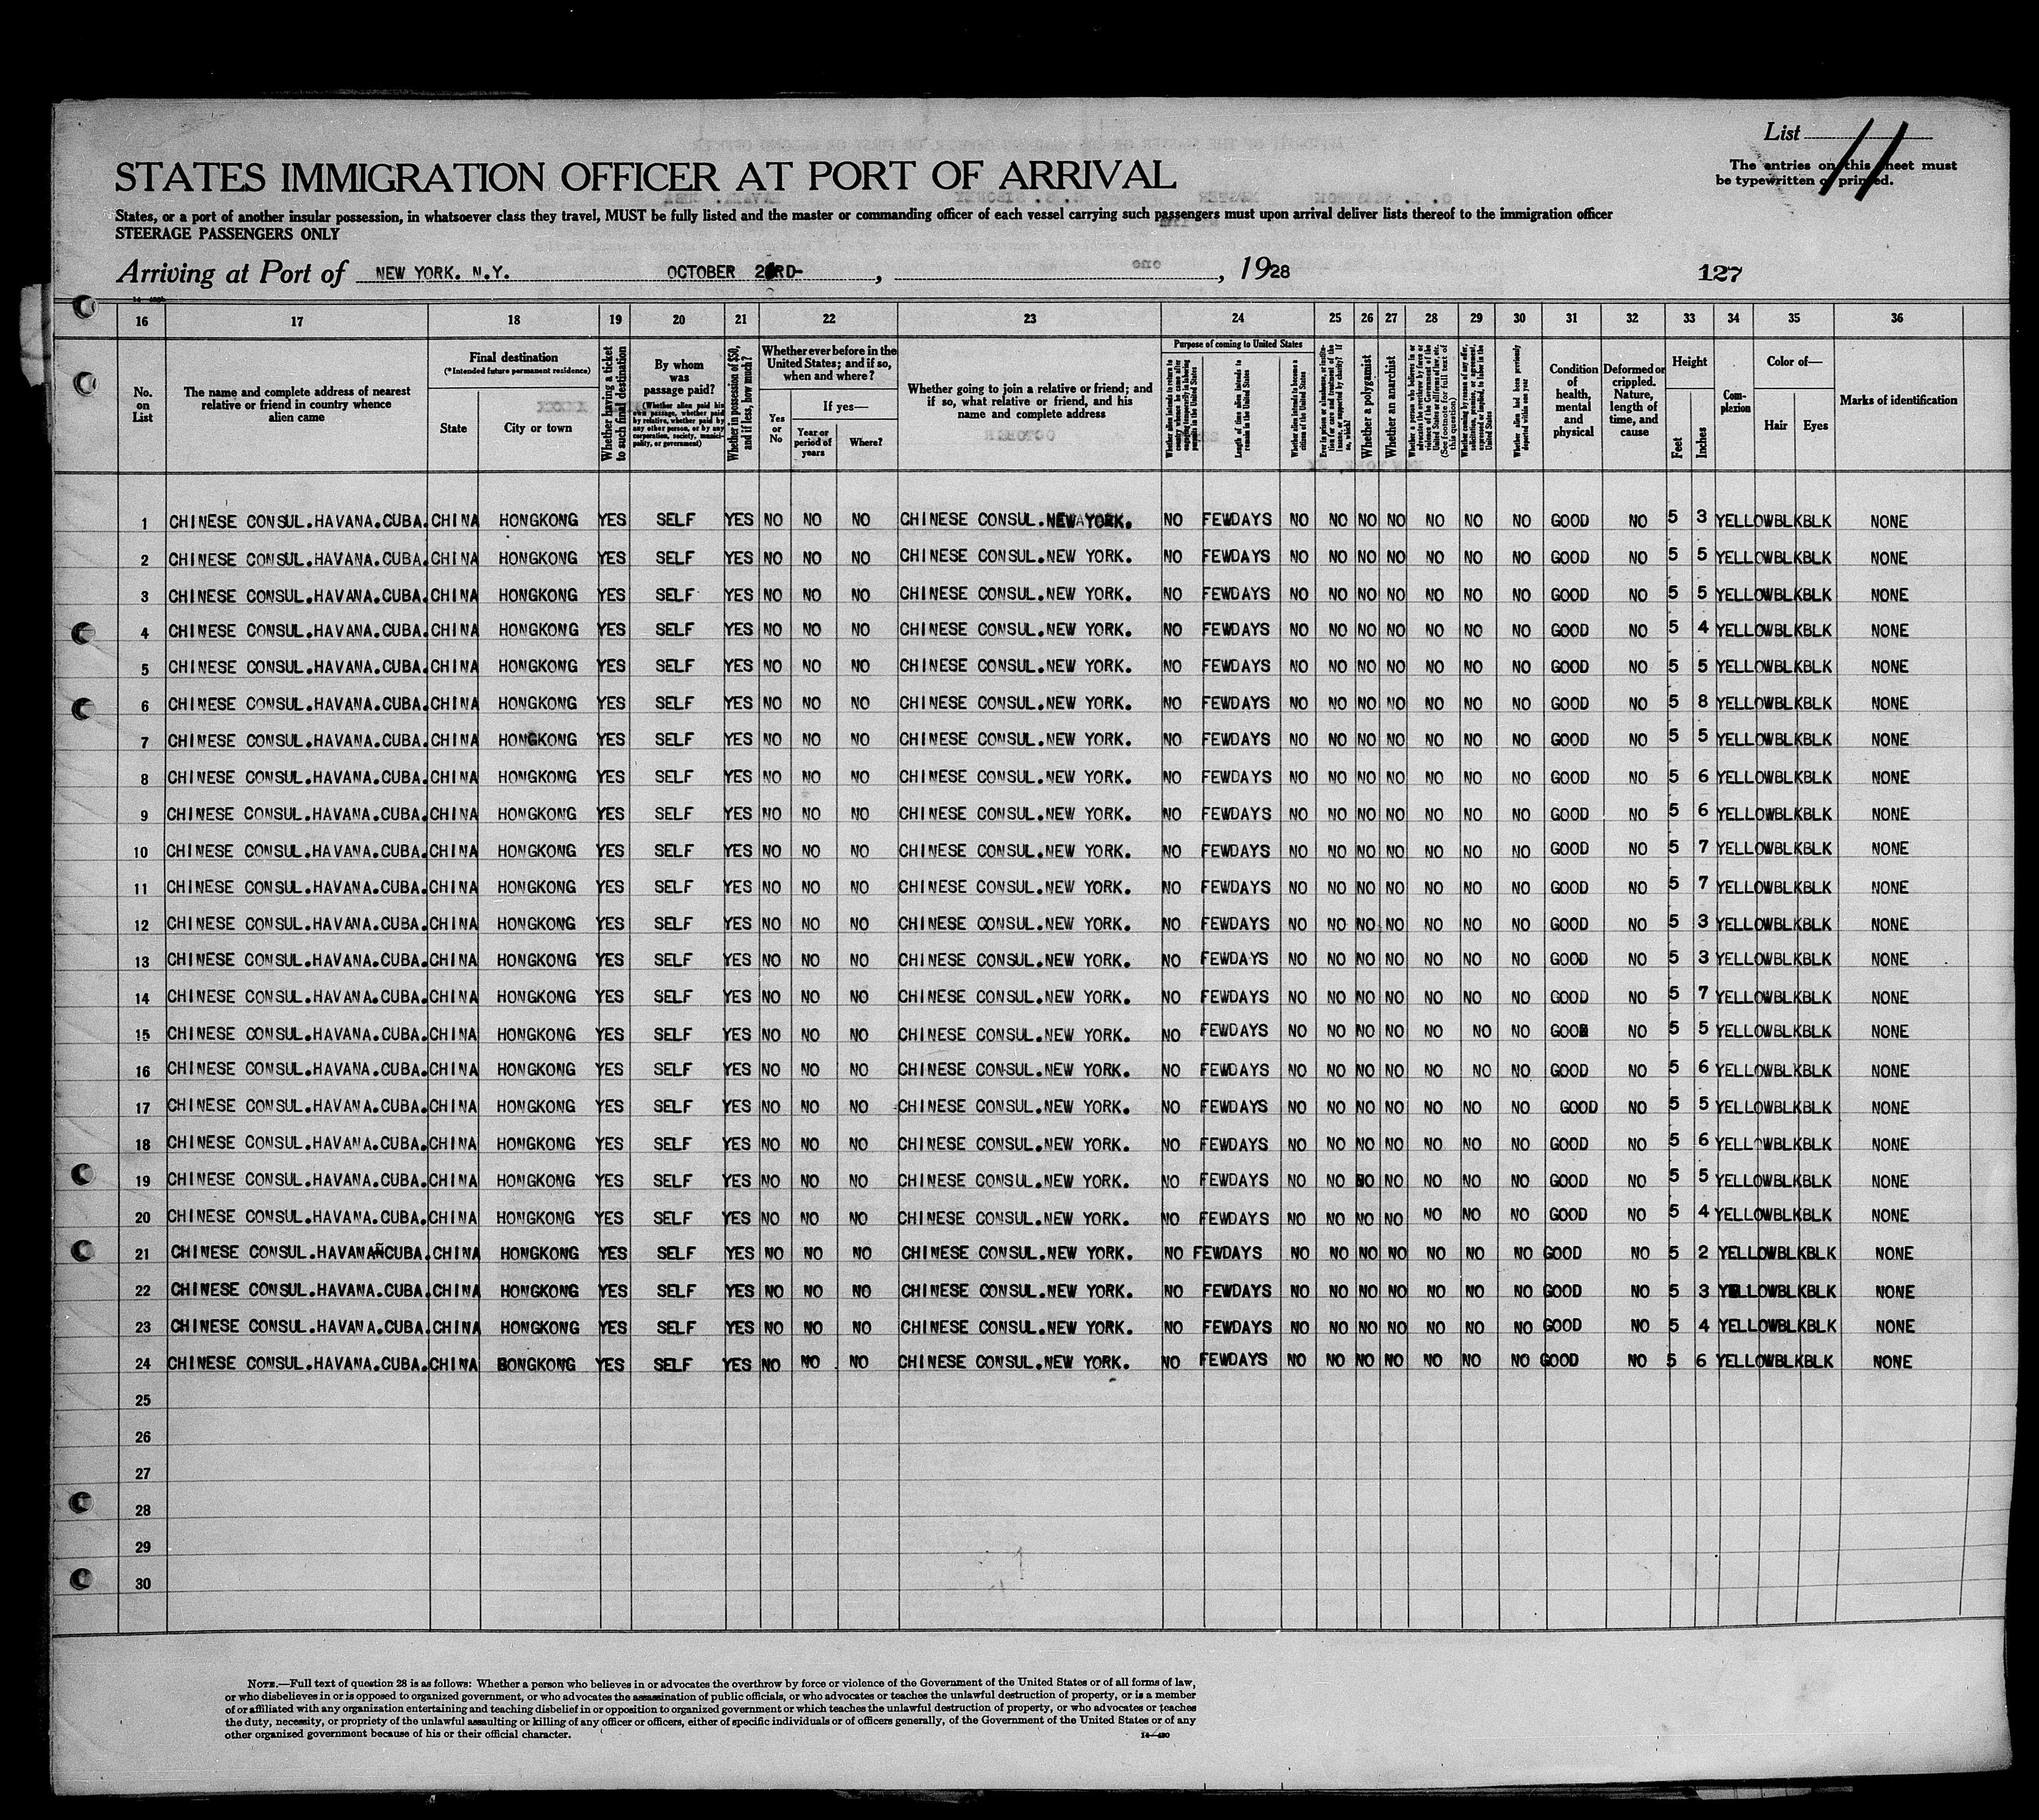 List 11
The entries on this sheet must
be typewritten or printed.
STATES IMMIGRATION OFFICER AT PORT OF ARRIVAL
States, or a port of another insular possession, in whatsoever class they travel, MUST be fully listed and the master or commanding officer of each vessel carrying such passengers must upon arrival deliver lists thereof to the immigration officer
STEERAGE PASSENGERS ONLY
Arriving at Port of NEW YORK. N.Y. OCTOBER 23RD- , , 1928 127
16 17 18 19 20 21 22 23 24 25 26 27 28 29 30 31 32 33 34 35 36
No. on List
The name and complete address of nearest relative or friend in country whence alien came
Final destination
(*Intended future permanent residence)
State City or town
Whether having a ticket to such final destination
By whom was passage paid?
(Whether alien paid his own passage, whether paid by relative, whether paid by any other person, or by any corporation, society, municipality, or government)
Whether in possession of $50, and if less, how much?
Whether ever before in the United States; and if so, when and where?
Yes or No
If yes—
Year or period of years Where?
Whether going to join a relative or friend; and if so, what relative or friend, and his name and complete address
Purpose of coming to United States
Whether alien intends to return to country whence he came after engaging temporarily in laboring pursuits in the United States
Length of time alien intends to remain in the United States
Whether alien intends to become a citizen of the United States
Whether a polygamist
Whether an anarchist
Whether alien had been previously deported within one year
Condition of health, mental and physical
Deformed or crippled. Nature, length of time, and cause
Height
Feet Inches
Complexion
Color of—
Hair Eyes
Marks of identification
1 CHINESE CONSUL.HAVANA.CUBA. CHINA HONGKONG YES SELF YES NO NO NO CHINESE CONSUL.NEW YORK. NO FEWDAYS NO NO NO NO NO NO NO GOOD NO 5 3 YELLOW BLK BLK NONE
2 CHINESE CONSUL.HAVANA.CUBA. CHINA HONGKONG YES SELF YES NO NO NO CHINESE CONSUL.NEW YORK. NO FEWDAYS NO NO NO NO NO NO NO GOOD NO 5 5 YELLOW BLK BLK NONE
3 CHINESE CONSUL.HAVANA.CUBA. CHINA HONGKONG YES SELF YES NO NO NO CHINESE CONSUL.NEW YORK. NO FEWDAYS NO NO NO NO NO NO NO GOOD NO 5 5 YELLOW BLK BLK NONE
4 CHINESE CONSUL.HAVANA.CUBA. CHINA HONGKONG YES SELF YES NO NO NO CHINESE CONSUL.NEW YORK. NO FEWDAYS NO NO NO NO NO NO NO GOOD NO 5 4 YELLOW BLK BLK NONE
5 CHINESE CONSUL.HAVANA.CUBA. CHINA HONGKONG YES SELF YES NO NO NO CHINESE CONSUL.NEW YORK. NO FEWDAYS NO NO NO NO NO NO NO GOOD NO 5 5 YELLOW BLK BLK NONE
6 CHINESE CONSUL.HAVANA.CUBA. CHINA HONGKONG YES SELF YES NO NO NO CHINESE CONSUL.NEW YORK. NO FEWDAYS NO NO NO NO NO NO NO GOOD NO 5 8 YELLOW BLK BLK NONE
7 CHINESE CONSUL.HAVANA.CUBA. CHINA HONGKONG YES SELF YES NO NO NO CHINESE CONSUL.NEW YORK. NO FEWDAYS NO NO NO NO NO NO NO GOOD NO 5 5 YELLOW BLK BLK NONE
8 CHINESE CONSUL.HAVANA.CUBA. CHINA HONGKONG YES SELF YES NO NO NO CHINESE CONSUL.NEW YORK. NO FEWDAYS NO NO NO NO NO NO NO GOOD NO 5 6 YELLOW BLK BLK NONE
9 CHINESE CONSUL.HAVANA.CUBA. CHINA HONGKONG YES SELF YES NO NO NO CHINESE CONSUL.NEW YORK. NO FEWDAYS NO NO NO NO NO NO NO GOOD NO 5 6 YELLOW BLK BLK NONE
10 CHINESE CONSUL.HAVANA.CUBA. CHINA HONGKONG YES SELF YES NO NO NO CHINESE CONSUL.NEW YORK. NO FEWDAYS NO NO NO NO NO NO NO GOOD NO 5 7 YELLOW BLK BLK NONE
11 CHINESE CONSUL.HAVANA.CUBA. CHINA HONGKONG YES SELF YES NO NO NO CHINESE CONSUL.NEW YORK. NO FEWDAYS NO NO NO NO NO NO NO GOOD NO 5 7 YELLOW BLK BLK NONE
12 CHINESE CONSUL.HAVANA.CUBA. CHINA HONGKONG YES SELF YES NO NO NO CHINESE CONSUL.NEW YORK. NO FEWDAYS NO NO NO NO NO NO NO GOOD NO 5 3 YELLOW BLK BLK NONE
13 CHINESE CONSUL.HAVANA.CUBA. CHINA HONGKONG YES SELF YES NO NO NO CHINESE CONSUL.NEW YORK. NO FEWDAYS NO NO NO NO NO NO NO GOOD NO 5 3 YELLOW BLK BLK NONE
14 CHINESE CONSUL.HAVANA.CUBA. CHINA HONGKONG YES SELF YES NO NO NO CHINESE CONSUL.NEW YORK. NO FEWDAYS NO NO NO NO NO NO NO GOOD NO 5 7 YELLOW BLK BLK NONE
15 CHINESE CONSUL.HAVANA.CUBA. CHINA HONGKONG YES SELF YES NO NO NO CHINESE CONSUL.NEW YORK. NO FEWDAYS NO NO NO NO NO NO NO GOOD NO 5 5 YELLOW BLK BLK NONE
16 CHINESE CONSUL.HAVANA.CUBA. CHINA HONGKONG YES SELF YES NO NO NO CHINESE CONSUL.NEW YORK. NO FEWDAYS NO NO NO NO NO NO NO GOOD NO 5 6 YELLOW BLK BLK NONE
17 CHINESE CONSUL.HAVANA.CUBA. CHINA HONGKONG YES SELF YES NO NO NO CHINESE CONSUL.NEW YORK. NO FEWDAYS NO NO NO NO NO NO NO GOOD NO 5 5 YELLOW BLK BLK NONE
18 CHINESE CONSUL.HAVANA.CUBA. CHINA HONGKONG YES SELF YES NO NO NO CHINESE CONSUL.NEW YORK. NO FEWDAYS NO NO NO NO NO NO NO GOOD NO 5 6 YELLOW BLK BLK NONE
19 CHINESE CONSUL.HAVANA.CUBA. CHINA HONGKONG YES SELF YES NO NO NO CHINESE CONSUL.NEW YORK. NO FEWDAYS NO NO NO NO NO NO NO GOOD NO 5 5 YELLOW BLK BLK NONE
20 CHINESE CONSUL.HAVANA.CUBA. CHINA HONGKONG YES SELF YES NO NO NO CHINESE CONSUL.NEW YORK. NO FEWDAYS NO NO NO NO NO NO NO GOOD NO 5 4 YELLOW BLK BLK NONE
21 CHINESE CONSUL.HAVANAÑCUBA. CHINA HONGKONG YES SELF YES NO NO NO CHINESE CONSUL.NEW YORK. NO FEWDAYS NO NO NO NO NO NO NO GOOD NO 5 2 YELLOW BLK BLK NONE
22 CHINESE CONSUL.HAVANA.CUBA. CHINA HONGKONG YES SELF YES NO NO NO CHINESE CONSUL.NEW YORK. NO FEWDAYS NO NO NO NO NO NO NO GOOD NO 5 3 YELLOW BLK BLK NONE
23 CHINESE CONSUL.HAVANA.CUBA. CHINA HONGKONG YES SELF YES NO NO NO CHINESE CONSUL.NEW YORK. NO FEWDAYS NO NO NO NO NO NO NO GOOD NO 5 4 YELLOW BLK BLK NONE
24 CHINESE CONSUL.HAVANA.CUBA. CHINA HONGKONG YES SELF YES NO NO NO CHINESE CONSUL.NEW YORK. NO FEWDAYS NO NO NO NO NO NO NO GOOD NO 5 6 YELLOW BLK BLK NONE
25
26
27
28
29
30
NOTE.—Full text of question 28 is as follows: Whether a person who believes in or advocates the overthrow by force or violence of the Government of the United States or of all forms of law,
or who disbelieves in or is opposed to organized government, or who advocates the assassination of public officials, or who advocates or teaches the unlawful destruction of property, or is a member
of or affiliated with any organization entertaining and teaching disbelief in or opposition to organized government or which teaches the unlawful destruction of property, or who advocates or teaches
the duty, necessity, or propriety of the unlawful assaulting or killing of any officer or officers, either of specific individuals or of officers generally, of the Government of the United States or of any
other organized government because of his or their official character.
14—430